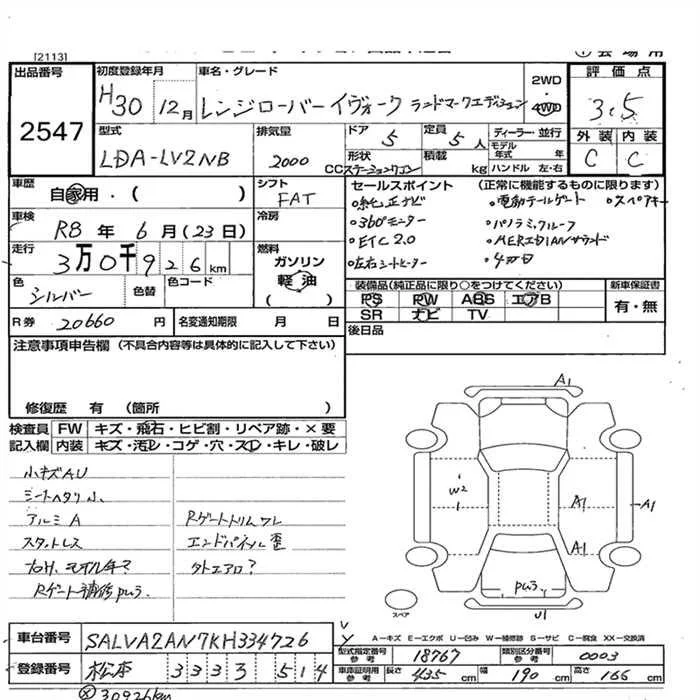 [2113]
出品番号
2547
初度登録年月
H30 12月
車名・グレード
レンジローバーイヴォーク ランドマークエディション
2WD
4WD
評価点
3.5
外装 内装
C C
型式
LDA-LV2NB
排気量
2000
CC
ドア
5
定員
5人
ディーラー・並行
形状
ステーションワゴン
積載
kg
モデル年式 年
ハンドル 左・右
車歴
自家用・( )
シフト
FAT
車検
R8年6月(23日)
冷房
走行
3万0千926km
燃料
ガソリン
軽油
( )
色
シルバー
色替
色コード
R券 20660円
名変通知期限 月 日
セールスポイント (正常に機能するものに限ります)
・純正ナビ
・360°モニター
・ETC2.0
・左右シートヒーター
・電動テールゲート
・パノラミックルーフ
・MERIDIANサウンド
・4WD
・スペアキー
装備品(純正品に限り○をつけてください)
PS PW ABS エアB
SR ナビ TV
新車保証書
有・無
後日品
注意事項申告欄(不具合内容等は具体的に記入して下さい)
修復歴 有 (箇所 )
検査員記入欄
FW キズ・飛石・ヒビ割・リペア跡・×要
内装 キズ・汚レ・コゲ・穴・スレ・キレ・破レ
小キズAU
シートヘタリ小
アルミA
スタットレス
Rゲート補修pw3
Rゲートトリムワレ
エンドパネル歪
外エアロ?
A1
W2
A1
A1
A1
pw3
U1
スペア
A-キズ E-エクボ U-凹み W-補修跡 S-サビ C-腐食 XX-交換済
車台番号 SALVA2AN7KH334726
登録番号 松本 333 3 514
型式指定番号参考 18767
類別区分番号参考 0003
車庫証明用参考 長さ 435cm 幅 190cm 高さ 166cm
30926km